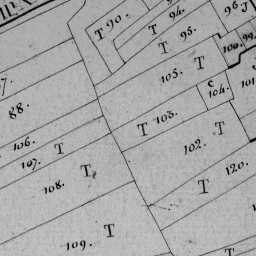 T 90.
T 94.
T 95.
96 J
100.
99.
105. T
C
104.
101
88.
T 103.
106.
107. T
102. T
108. T
T 120.
109. T
T